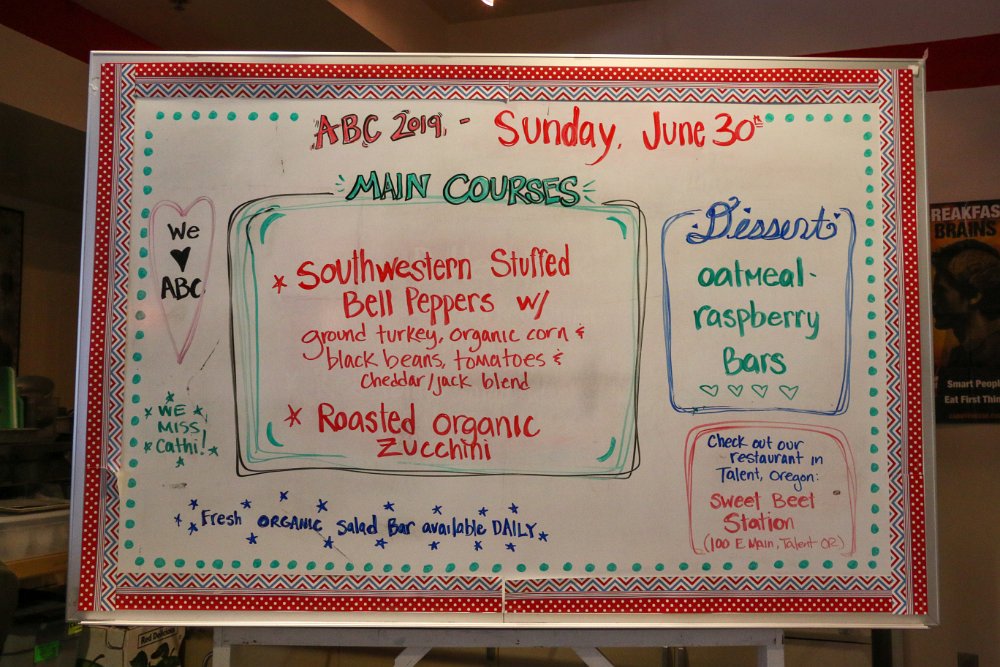 ABC 2019. - Sunday, June 30th
MAIN COURSES
We
♥
ABC
* Southwestern Stuffed
Bell Peppers w/
ground turkey, organic corn &
black beans, tomatoes &
cheddar/jack blend
* Roasted organic
zucchini
WE
MISS
Cathi!
Fresh ORGANIC Salad Bar available DAILY
Dessert
oatmeal-
raspberry
Bars
Check out our
restaurant in
Talent, Oregon:
Sweet Beet
Station
(100 E Main, Talent OR)
REAKFAS
BRAINS
Smart Peopl
Eat First Thin
Red Delicious